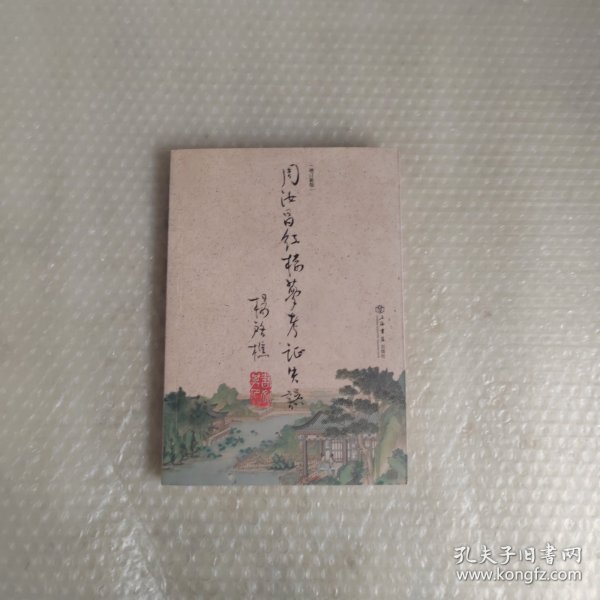 （增订新版）
周汝昌红楼梦考证失误
杨启樵
上海書店出版社
孔夫子旧书网
www.kongfz.com